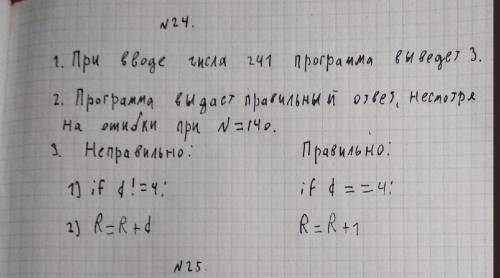 №24.
1. При вводе числа 241 программа выведет 3.
2. Программа выдаст правильный ответ, несмотря
на ошибки при N=140.
3. Неправильно: Правильно:
1) if d!=4: if d==4:
2) R=R+d R=R+1
№25.